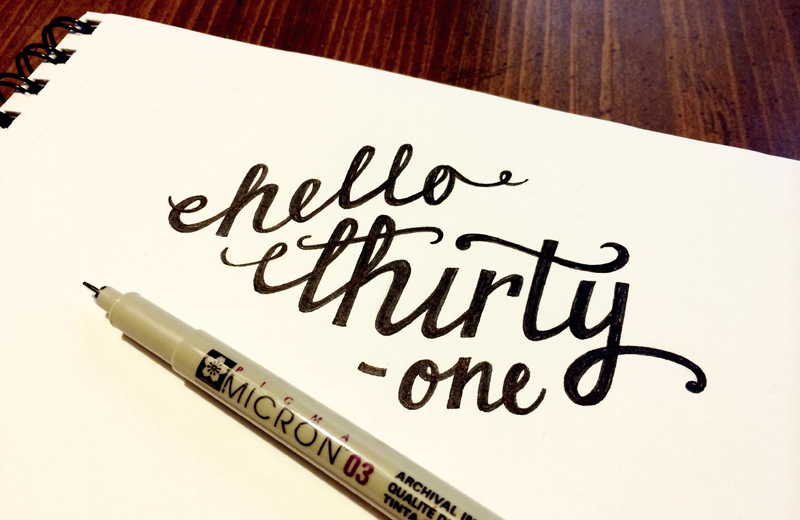 hello
thirty
-one
PIGMA
MICRON 03
ARCHIVAL IN
QUALITÉ D
TINTA